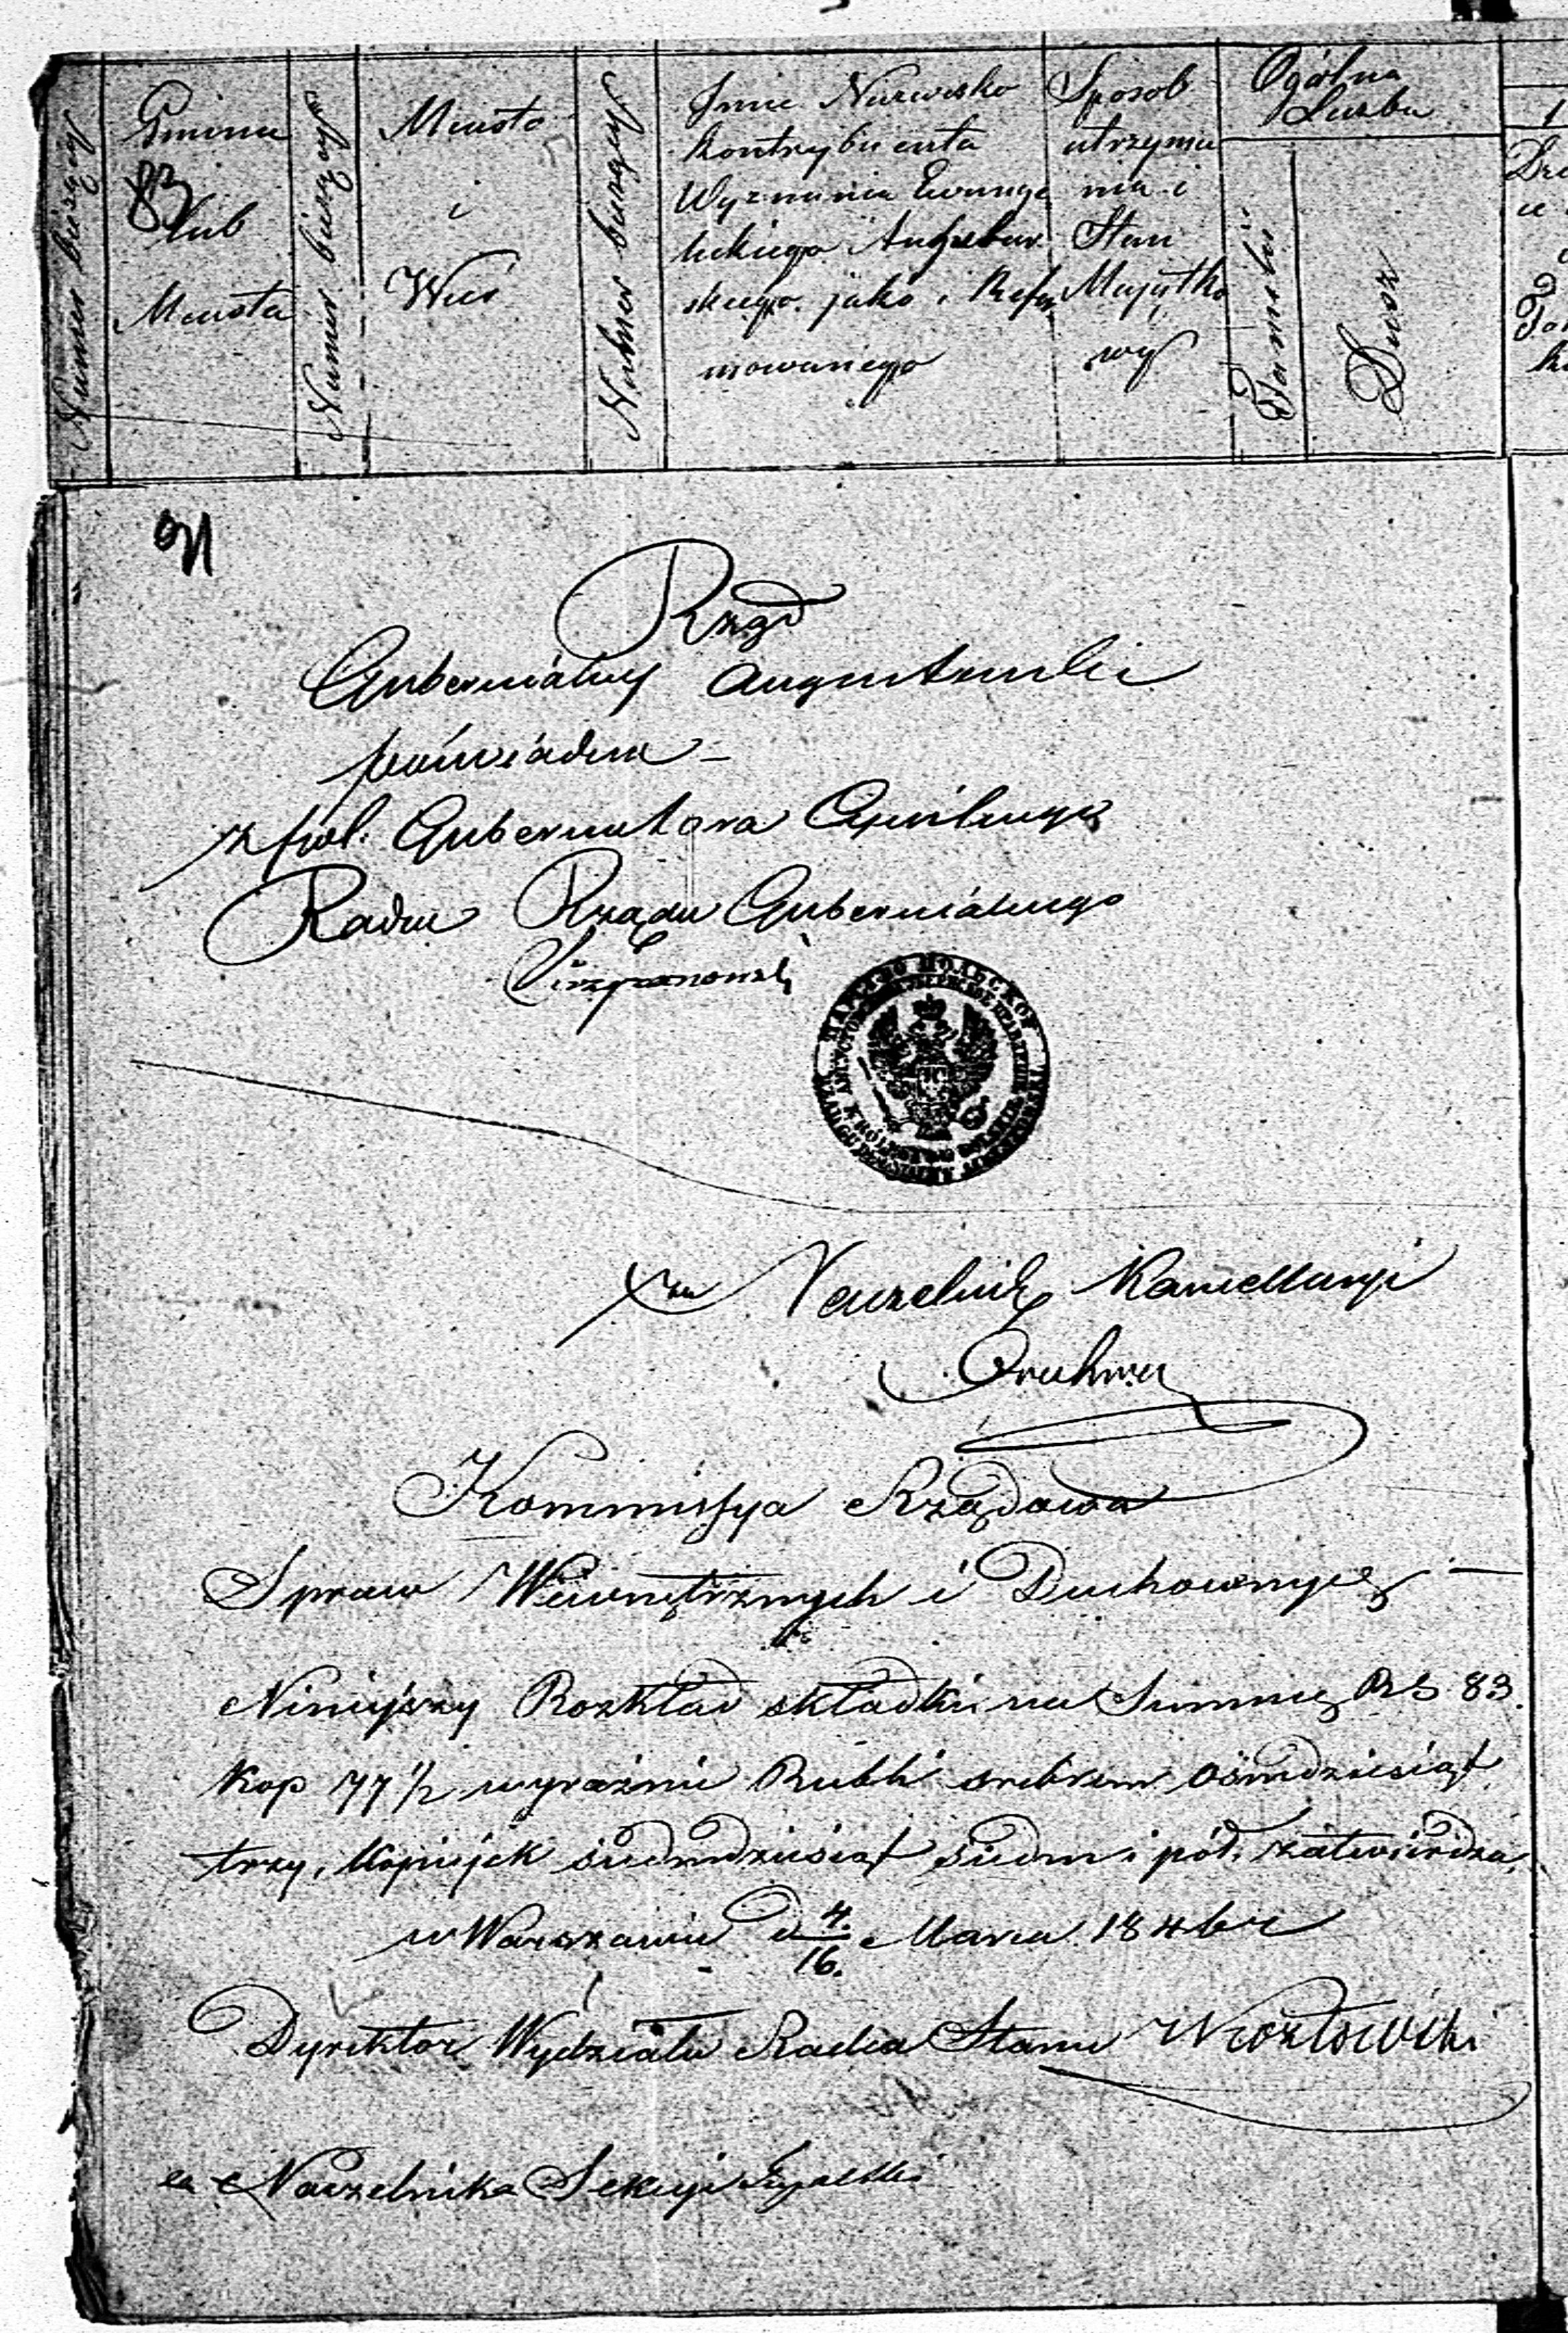 Numer bieżący
Gmina
83
lub
Miasta
Numer bieżący
Miasto
i
Wieś
Numer bieżący
Imie Nazwisko
kontrybuenta
Wyznania Ewange
lickiego Augsbur
skiego jako i Refor
mowanego
Sposob
utrzyma
nia i
Stan
Majątko
wy
Ogólna
Liczba
Familii
Dusz
Rząd
Gubernialny Augustowski
poświadcza
za pol: Gubernatora Cywilnego
Radca Rządu Gubernialnego
ЦАРСТВО ПОЛЬСКОЕ
za Naczelnik Kancellaryi
Kommissya Rządowa
Spraw Wewnętrznych i Duchownych
Niniejszy Rozkład składki na Summę RS 83
Kop 77 1/2 wyraźnie Rubli srebrem ośmdziesiąt
trzy, Kopiejek siedmdziesiąt siedm i pół, zatwierdza,
w Warszawie d 4/16. Marca 1846 r
Dyrektor Wydziału Radca Stanu
za Naczelnika Sekcyi